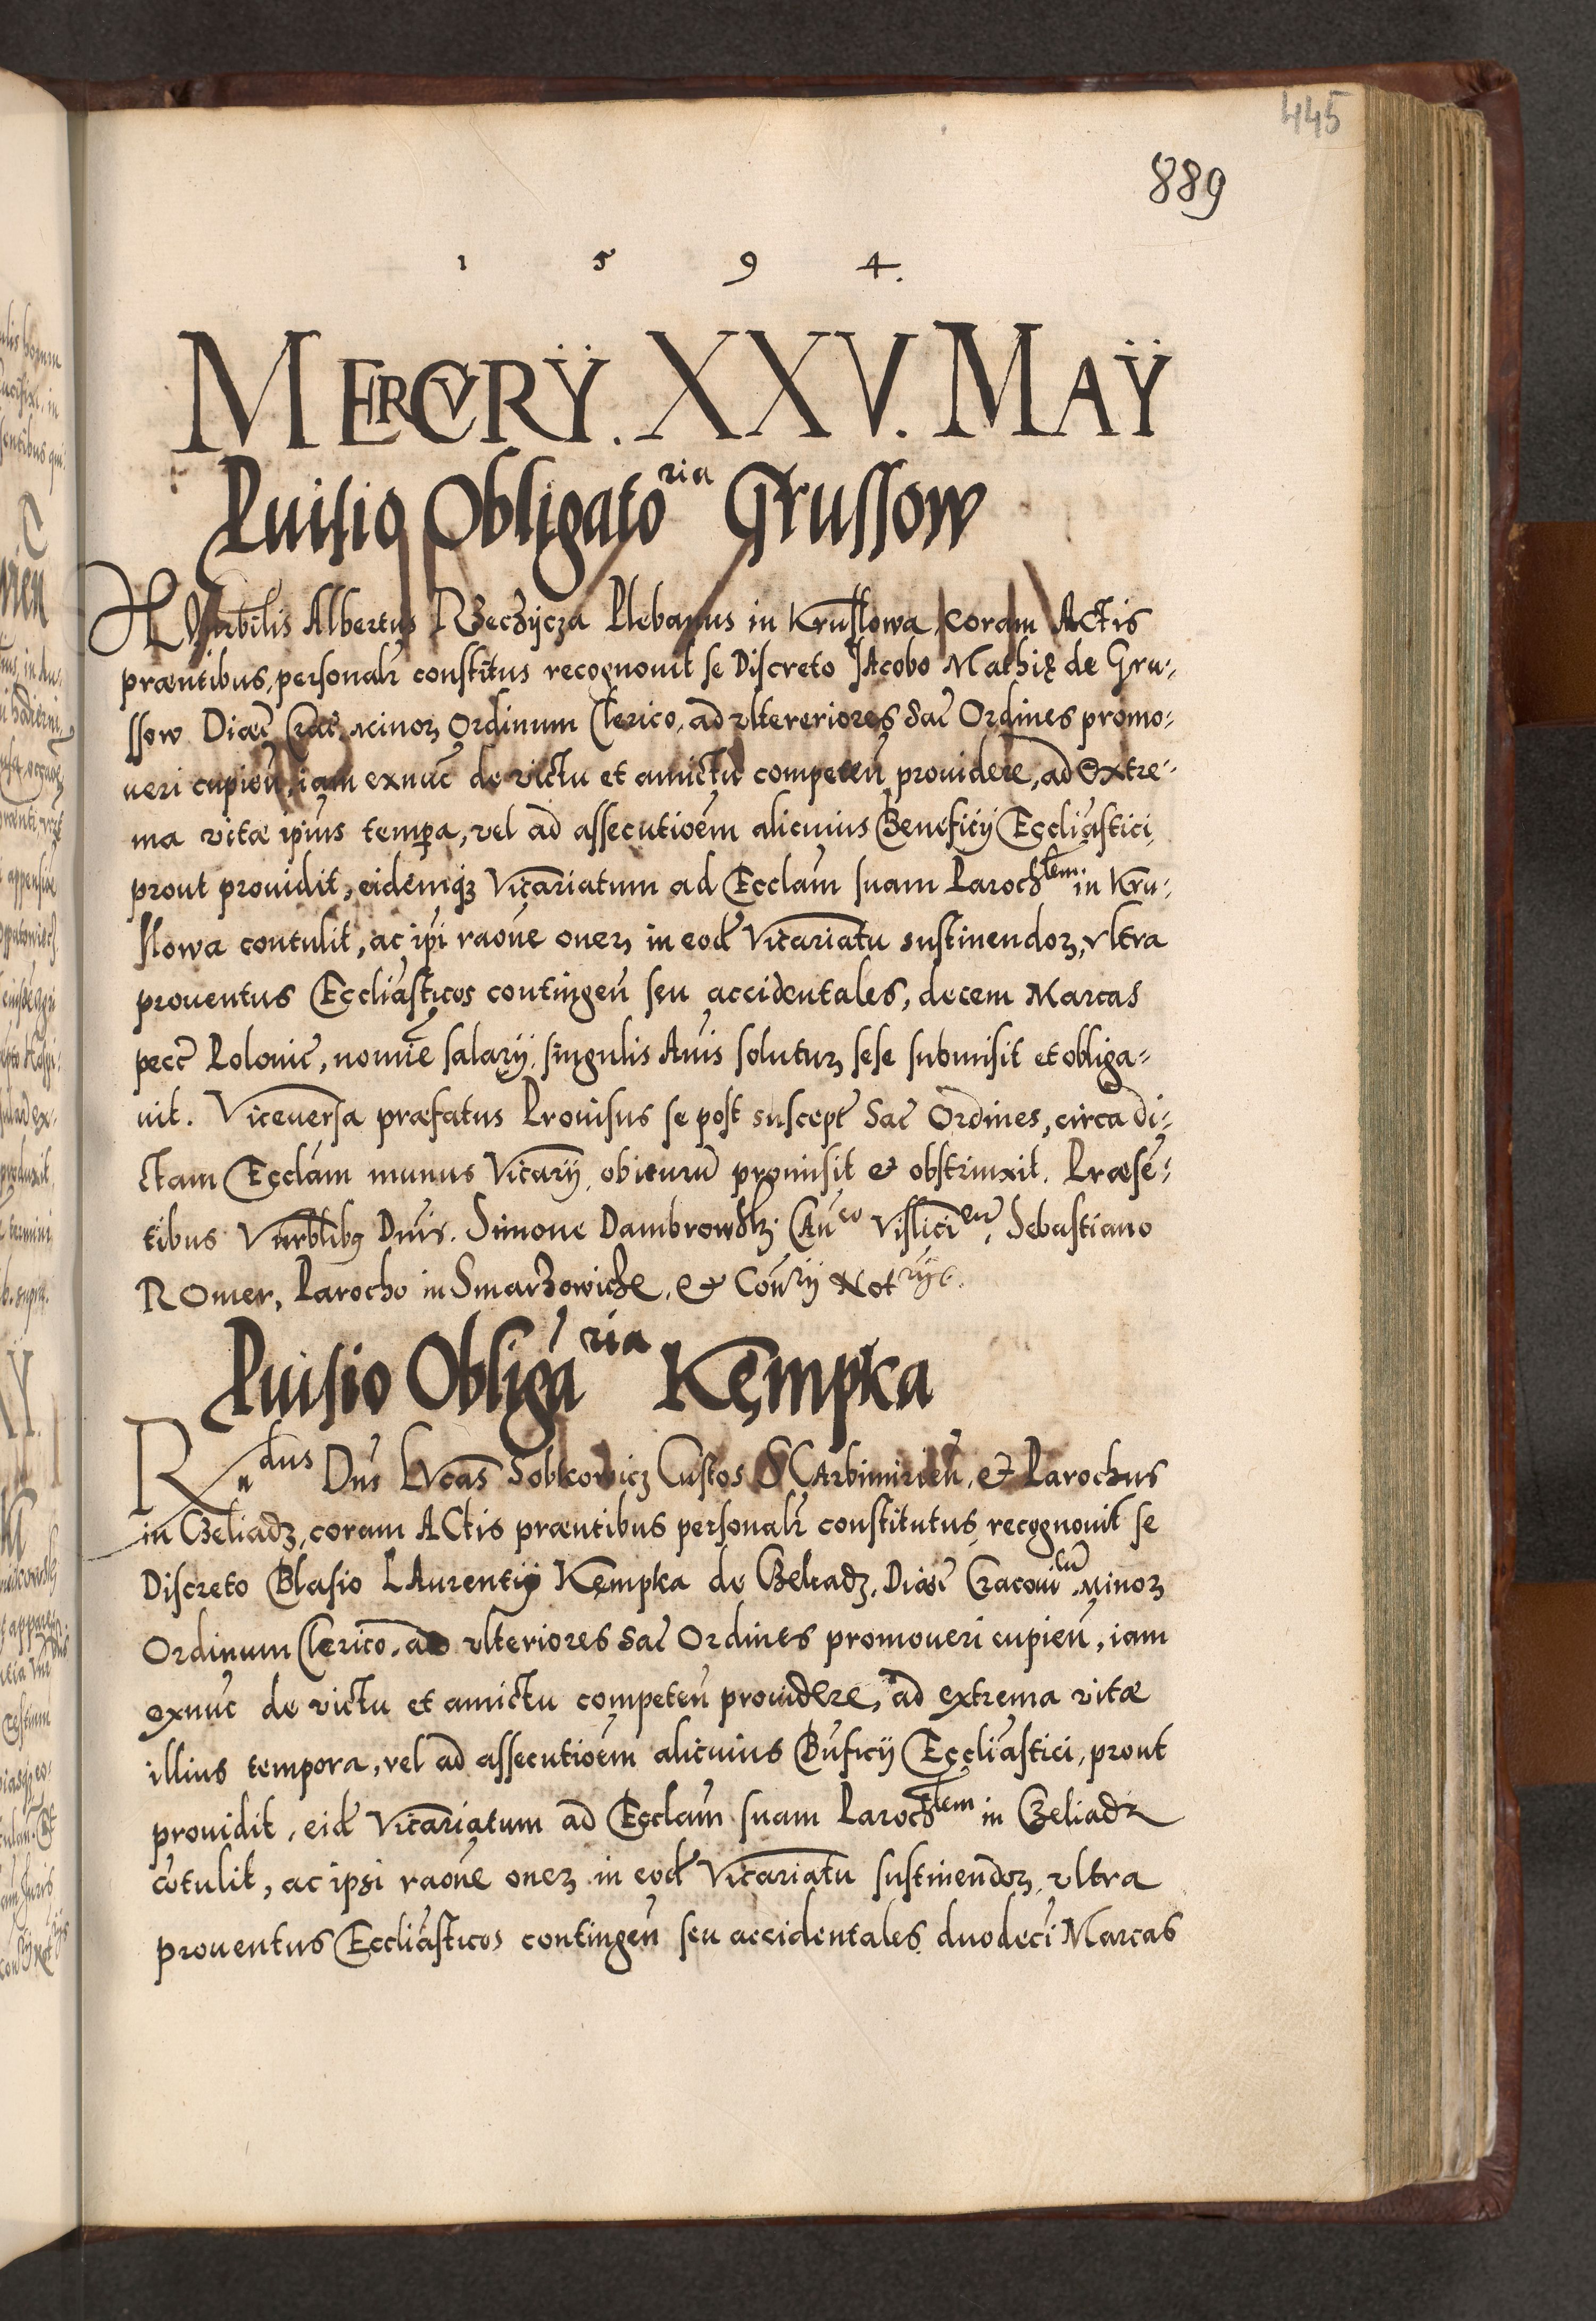 445
889
1 5 9 4.
MERCVRŸ. XXV. MAŸ
Puisio Obligatoria Grussow
Hnrbilis Albertus Rzeczÿcza Plebanus in Kruslowa coram Actis
præntibus, personalr constitus recognouit se Discreto Jacobo Mathię de Gru-
ssow Diœc Crac, minorꝝ Ordinum Clerico, ad vltereriores Sac Ordines promo-
ueri cupien, iam exnūc de victu et amictu competen prouidere, ad extre-
ma vitæ ipius tempa, vel ad assecutioēm alicuius Beneficÿ Eccliastici,
prout prouidit, eidemqꝫ Vicariatum ad Ecclam suam Parochlem in Kru-
slowa contulit, ac ipi raone onerꝝ in eod Vicariatu sustinendoꝝ, vltra
prouentus Eccliasticos contingen seu accidentales, decem Marcas
pecc Polonic, nomie salarÿ, singulis Anis soluturꝝ sese submisit et obliga-
uit. Viceversa præfatus Prouisus se post suscept Sac Ordines, circa di-
ctam Ecclam munus Vicarÿ, obiturū promisit et obstrinxit. Præsē-
tibus Vnrblibꝫ Dnis. Simone Dambrowskꝫ Caneo Vislicien, Sebastiano
Romer, Parocho in Smarzowicze, et Conrÿ Notrÿs.
Puisio Obligaria Kempka
Rndus Dns Lvcas Sobkowicz Custos Scarbimirien, et Parochus
in Czeliadz, coram Actis præntibus personalr constitutus recognouit se
Discreto Blasio Laurentÿ Kempka de Czeliadz, Diœc Cracouien Minoꝝ
Ordinum Clerico, ad vlteriores Sac Ordines promoueri cupien, iam
exnūc de victu et amictu competen prouidere, ad extrema vitæ
illius tempora, vel ad assecutioēm alicuius Bnficÿ Eccliastici, prout
prouidit, eid Vicariatum ad Ecclam suam Parochlem in Czeliadz
cōtulit, ac ipsi raone onerꝝ in eod Vicariatu sustinendoꝝ, vltra
prouentus Eccliasticos contingen seu accidentales duodeci Marcas